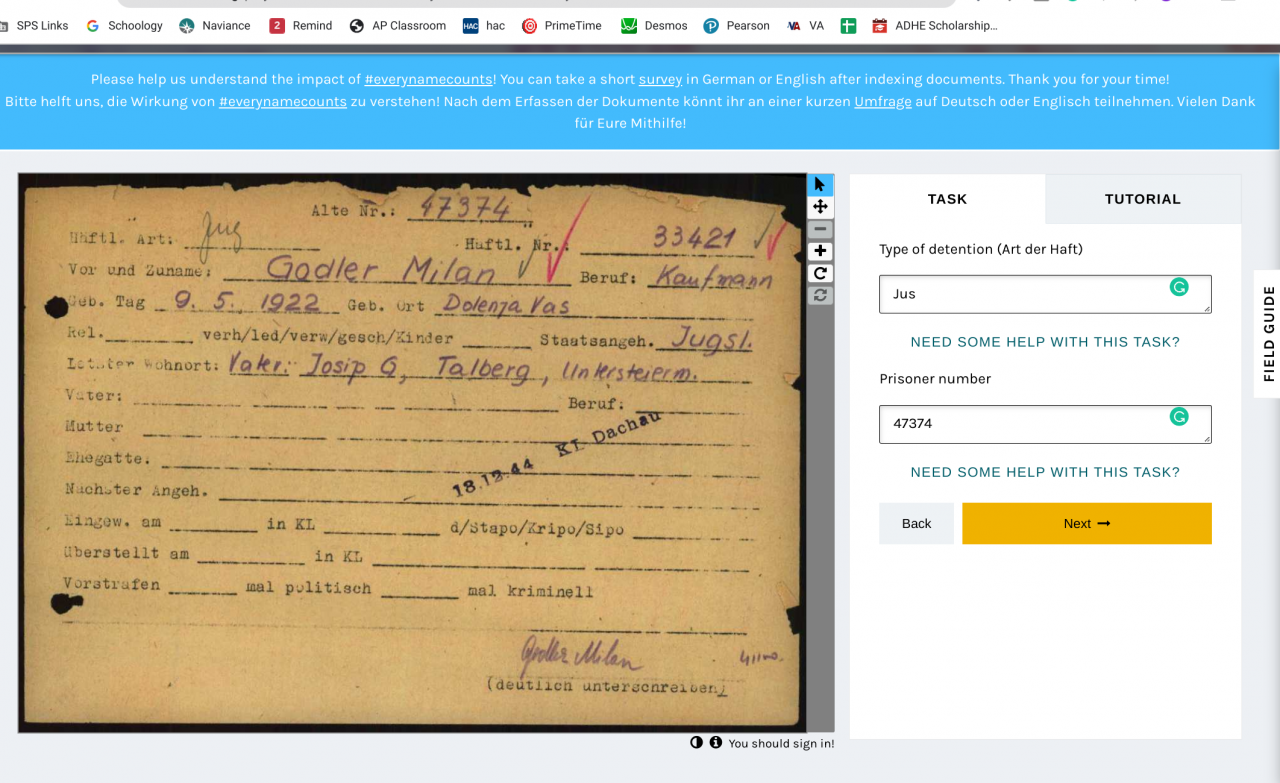 SPS Links Schoology Naviance Remind AP Classroom hac PrimeTime Desmos Pearson VA ADHE Scholarship...
Please help us understand the impact of #everynamecounts! You can take a short survey in German or English after indexing documents. Thank you for your time!
Bitte helft uns, die Wirkung von #everynamecounts zu verstehen! Nach dem Erfassen der Dokumente könnt ihr an einer kurzen Umfrage auf Deutsch oder Englisch teilnehmen. Vielen Dank
für Eure Mithilfe!
Alte Nr.: 47374
Häftl. Art: Jug Häftl. Nr.: 33421
Vor und Zuname: Godler Milan Beruf: Kaufmann
Geb. Tag 9. 5. 1922 Geb. Ort Dolenja Vas
Rel. verh/led/verw/gesch/Kinder Staatsangeh. Jugsl.
Letzter Wohnort: Vater: Josip G, Talberg, Untersteierm.
Vater: Beruf:
Mutter
Ehegatte.
18.12.44 KL Dachau
Nächster Angeh.
Eingew. am in KL d/Stapo/Kripo/Sipo
Überstellt am in KL
Vorstrafen mal politisch mal kriminell
Godler Milan
(deutlich unterschreiben)
You should sign in!
TASK TUTORIAL
Type of detention (Art der Haft)
Jus
NEED SOME HELP WITH THIS TASK?
Prisoner number
47374
NEED SOME HELP WITH THIS TASK?
Back Next →
FIELD GUIDE